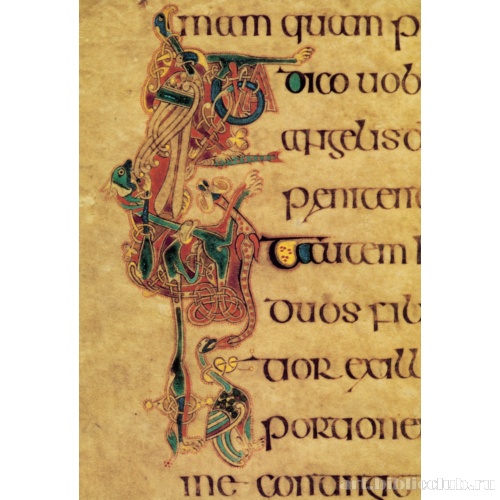 mam quam p
dico uob
angelis d
penitent
autem h
duos fil
tior exill
portione
me contingit